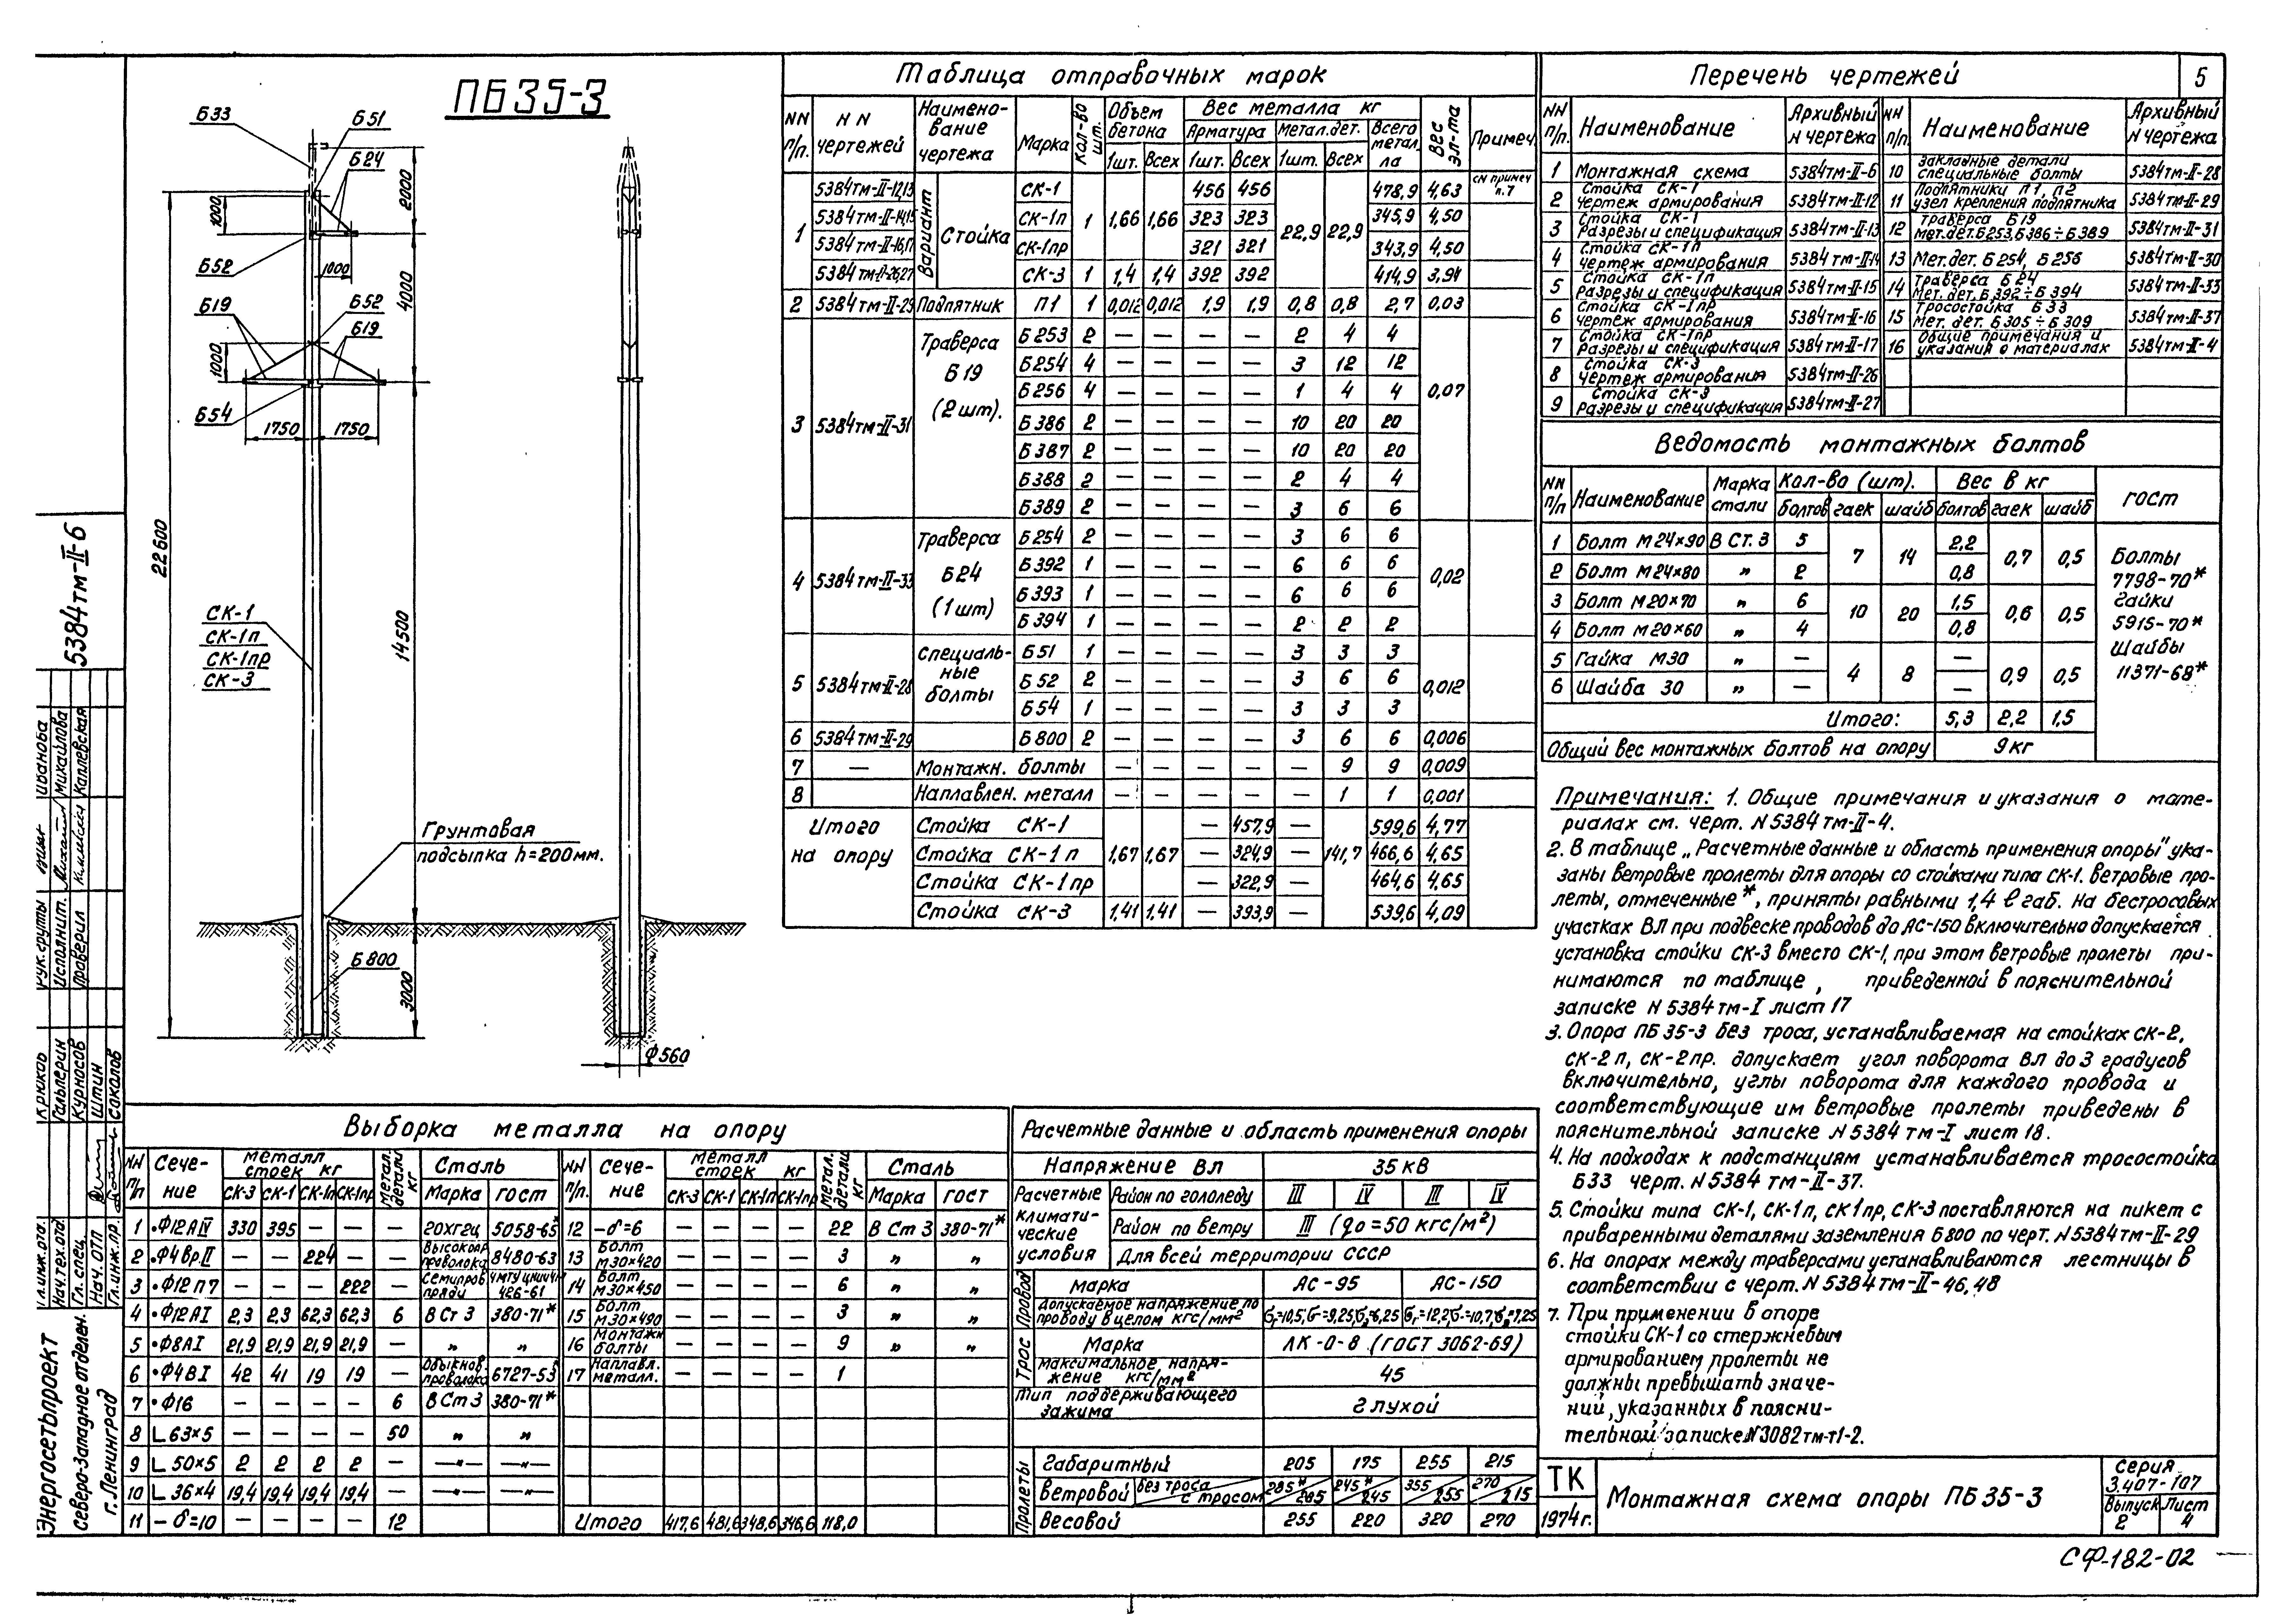 ПБ35-3
Б33
Б51
Б24
Б52
Б19
Б52
Б19
Б54
1000
1000
2000
4000
1000
1750
1750
22600
14500
3000
СК-1
СК-1п
СК-1пр
СК-3
Грунтовая
подсыпка h=200мм.
Б800
Ф560
5384тм-II-6
Таблица отправочных марок
NN п/п. | NN чертежей | Наименование чертежа | Марка | Кол-во шт. | Объем бетона | Вес металла кг | Вес эл-та | Примеч.
Арматура | Метал.дет. | Всего метал-ла
1шт. | Всех | 1шт. | Всех | 1шт. | Всех
1 | 5384тм-II-12,13 | Вариант | Стойка | СК-1 | 1 | 1,66 | 1,66 | 456 | 456 | 22,9 | 22,9 | 478,9 | 4,63 | см примеч п.7
5384тм-II-14,15 | СК-1п | 323 | 323 | 345,9 | 4,50
5384тм-II-16,17 | СК-1пр | 321 | 321 | 343,9 | 4,50
5384тм-II-26,27 | СК-3 | 1 | 1,4 | 1,4 | 392 | 392 | 414,9 | 3,94
2 | 5384тм-II-29 | Подпятник | П1 | 1 | 0,012 | 0,012 | 1,9 | 1,9 | 0,8 | 0,8 | 2,7 | 0,03
3 | 5384тм-II-31 | Траверса Б19 (2шт). | Б253 | 2 | — | — | — | — | 2 | 4 | 4 | 0,07
Б254 | 4 | — | — | — | — | 3 | 12 | 12
Б256 | 4 | — | — | — | — | 1 | 4 | 4
Б386 | 2 | — | — | — | — | 10 | 20 | 20
Б387 | 2 | — | — | — | — | 10 | 20 | 20
Б388 | 2 | — | — | — | — | 2 | 4 | 4
Б389 | 2 | — | — | — | — | 3 | 6 | 6
4 | 5384тм-II-33 | Траверса Б24 (1шт) | Б254 | 2 | — | — | — | — | 3 | 6 | 6 | 0,02
Б392 | 1 | — | — | — | — | 6 | 6 | 6
Б393 | 1 | — | — | — | — | 6 | 6 | 6
Б394 | 1 | — | — | — | — | 2 | 2 | 2
5 | 5384тм-II-28 | Специальные болты | Б51 | 1 | — | — | — | — | 3 | 3 | 3 | 0,012
Б52 | 2 | — | — | — | — | 3 | 6 | 6
Б54 | 1 | — | — | — | — | 3 | 3 | 3
6 | 5384тм-II-29 | Б800 | 2 | — | — | — | — | 3 | 6 | 6 | 0,006
7 | — | Монтажн. болты | — | — | — | — | — | 9 | 9 | 0,009
8 | Наплавлен. металл | — | — | — | — | — | 1 | 1 | 0,001
Итого на опору | Стойка СК-1 | 1,67 | 1,67 | — | 457,9 | — | 141,7 | 599,6 | 4,77
Стойка СК-1п | — | 324,9 | — | 466,6 | 4,65
Стойка СК-1пр | — | 322,9 | — | 464,6 | 4,65
Стойка СК-3 | 1,41 | 1,41 | — | 393,9 | — | 539,6 | 4,09
Перечень чертежей
5
NN п/п. | Наименование | Архивный N чертежа | NN п/п. | Наименование | Архивный N чертежа
1 | Монтажная схема | 5384тм-II-6 | 10 | Закладные детали специальные болты | 5384тм-II-28
2 | Стойка СК-1 чертеж армирования | 5384тм-II-12 | 11 | Подпятники П1, П2 узел крепления подпятника | 5384тм-II-29
3 | Стойка СК-1 Разрезы и спецификация | 5384тм-II-13 | 12 | Траверса Б19 Мет.дет.Б253,Б386÷Б389 | 5384тм-II-31
4 | Стойка СК-1п чертеж армирования | 5384тм-II-14 | 13 | Мет.дет. Б254, Б256 | 5384тм-II-30
5 | Стойка СК-1п Разрезы и спецификация | 5384тм-II-15 | 14 | Траверса Б24 Мет. дет. Б392÷Б394 | 5384тм-II-33
6 | Стойка СК-1пр чертеж армирования | 5384тм-II-16 | 15 | Тросостойка Б33 Мет. дет. Б305÷Б309 | 5384тм-II-37
7 | Стойка СК-1пр Разрезы и спецификация | 5384тм-II-17 | 16 | Общие примечания и указания о материалах | 5384тм-II-4
8 | Стойка СК-3 чертеж армирования | 5384тм-II-26
9 | Стойка СК-3 Разрезы и спецификация | 5384тм-II-27
Ведомость монтажных болтов
NN п/п | Наименование | Марка стали | Кол-во (шт). | Вес в кг | ГОСТ
болтов | гаек | шайб | болтов | гаек | шайб
1 | Болт М24×90 | В Ст. 3 | 5 | 7 | 14 | 2,2 | 0,7 | 0,5 | Болты
2 | Болт М24×80 | " | 2 | 0,8 | 7798-70*
3 | Болт М20×70 | " | 6 | 10 | 20 | 1,5 | 0,6 | 0,5 | Гайки
4 | Болт М20×60 | " | 4 | 0,8 | 5915-70*
5 | Гайка М30 | " | — | 4 | 8 | — | 0,9 | 0,5 | Шайбы
6 | Шайба 30 | " | — | — | 11371-68*
Итого: | 5,3 | 2,2 | 1,5
Общий вес монтажных болтов на опору | 9кг
Примечания: 1. Общие примечания и указания о мате-
риалах см. черт. N5384тм-II-4.
2. В таблице „Расчетные данные и область применения опоры" ука-
заны ветровые пролеты для опоры со стойками типа СК-1. Ветровые про-
леты, отмеченные *, приняты равными 1,4 ℓ габ. На бестросовых
участках ВЛ при подвеске проводов до АС-150 включительно допускается
установка стойки СК-3 вместо СК-1, при этом ветровые пролеты при-
нимаются по таблице, приведенной в пояснительной
записке N 5384тм-I лист 17
3. Опора ПБ35-3 без троса, устанавливаемая на стойках СК-2,
СК-2п, СК-2пр. допускает угол поворота ВЛ до 3 градусов
включительно, углы поворота для каждого провода и
соответствующие им ветровые пролеты приведены в
пояснительной записке N5384тм-I лист 18.
4. На подходах к подстанциям устанавливается тросостойка
Б33 черт. N5384 тм-II-37.
5. Стойки типа СК-1, СК-1п, СК1пр, СК-3 поставляются на пикет с
приваренными деталями заземления Б800 по черт. N5384тм-II-29
6. На опорах между траверсами устанавливаются лестницы в
соответствии с черт. N5384тм-II-46,48
7. При применении в опоре
стойки СК-1 со стержневым
армированием пролеты не
должны превышать значе-
ний, указанных в поясни-
тельной записке N3082тм-т1-2.
Выборка металла на опору
NN п/п | Сечение | Металл стоек кг | Метал. детали кг | Сталь | NN п/п. | Сечение | Металл стоек кг | Метал. детали кг | Сталь
СК-3 | СК-1 | СК-1п | СК-1пр | Марка | ГОСТ | СК-3 | СК-1 | СК-1п | СК-1пр | Марка | ГОСТ
1 | •Ф12АIV | 330 | 395 | — | — | 20ХГ2Ц | 5058-65* | 12 | —δ=6 | — | — | — | — | 22 | В Ст 3 | 380-71*
2 | •Ф4Вр.II | — | — | 224 | — | Высокопр. проволока | 8480-63 | 13 | Болт М30×420 | — | — | — | — | 3 | " | "
3 | •Ф12п7 | — | — | — | 222 | Семипров. пряди | ЧМТУ ЦНИИЧМ 426-61 | 14 | Болт М30×450 | — | — | — | — | 6 | " | "
4 | •Ф12АI | 2,3 | 2,3 | 62,3 | 62,3 | 6 | В Ст 3 | 380-71* | 15 | Болт М30×490 | — | — | — | — | 3 | " | "
5 | •Ф8АI | 21,9 | 21,9 | 21,9 | 21,9 | — | " | " | 16 | Монтажн болты | — | — | — | — | 9 | " | "
6 | •Ф4ВI | 42 | 41 | 19 | 19 | — | Обыкнов. проволока | 6727-53* | 17 | Наплавл. металл. | — | — | — | — | 1
7 | •Ф16 | — | — | — | — | 6 | В Ст 3 | 380-71*
8 | L63×5 | — | — | — | — | 50 | " | "
9 | L50×5 | 2 | 2 | 2 | 2 | — | —"— | —"—
10 | L36×4 | 19,4 | 19,4 | 19,4 | 19,4 | — | —"— | —"—
11 | —δ=10 | — | — | — | — | 12 | Итого | 417,6 | 481,6 | 348,6 | 346,6 | 118,0
Расчетные данные и область применения опоры
Напряжение ВЛ | 35 кВ
Расчетные климатические условия | Район по гололеду | III | IV | III | IV
Район по ветру | III (qo=50 кгс/м²)
Для всей территории СССР
Провод | Марка | АС-95 | АС-150
Допускаемое напряжение по проводу в целом кгс/мм²
Трос | Марка | ЛК-0-8 (ГОСТ 3062-69)
Максимальное напряжение кгс/мм² | 45
Тип поддерживающего зажима | Глухой
Пролеты | Габаритный | 205 | 175 | 255 | 215
Ветровой | без троса / с тросом | 285*/205 | 245*/245 | 355/255 | 270/215
Весовой | 255 | 220 | 320 | 270
ТК
1974г.
Монтажная схема опоры ПБ35-3
Серия
3.407-107
Выпуск 2
Лист 4
СФ-182-02
Энергосетьпроект
Северо-Западное отделен.
г. Ленинград
Гл.инж.отд. Крюков
Нач.тех.отд. Гальперин
Гл. спец. Курносов
Нач. ОТП Штин
Гл.инж.пр. Соколов
Рук.группы Иванова
Исполнит. Михайлова
Проверил Каплевская